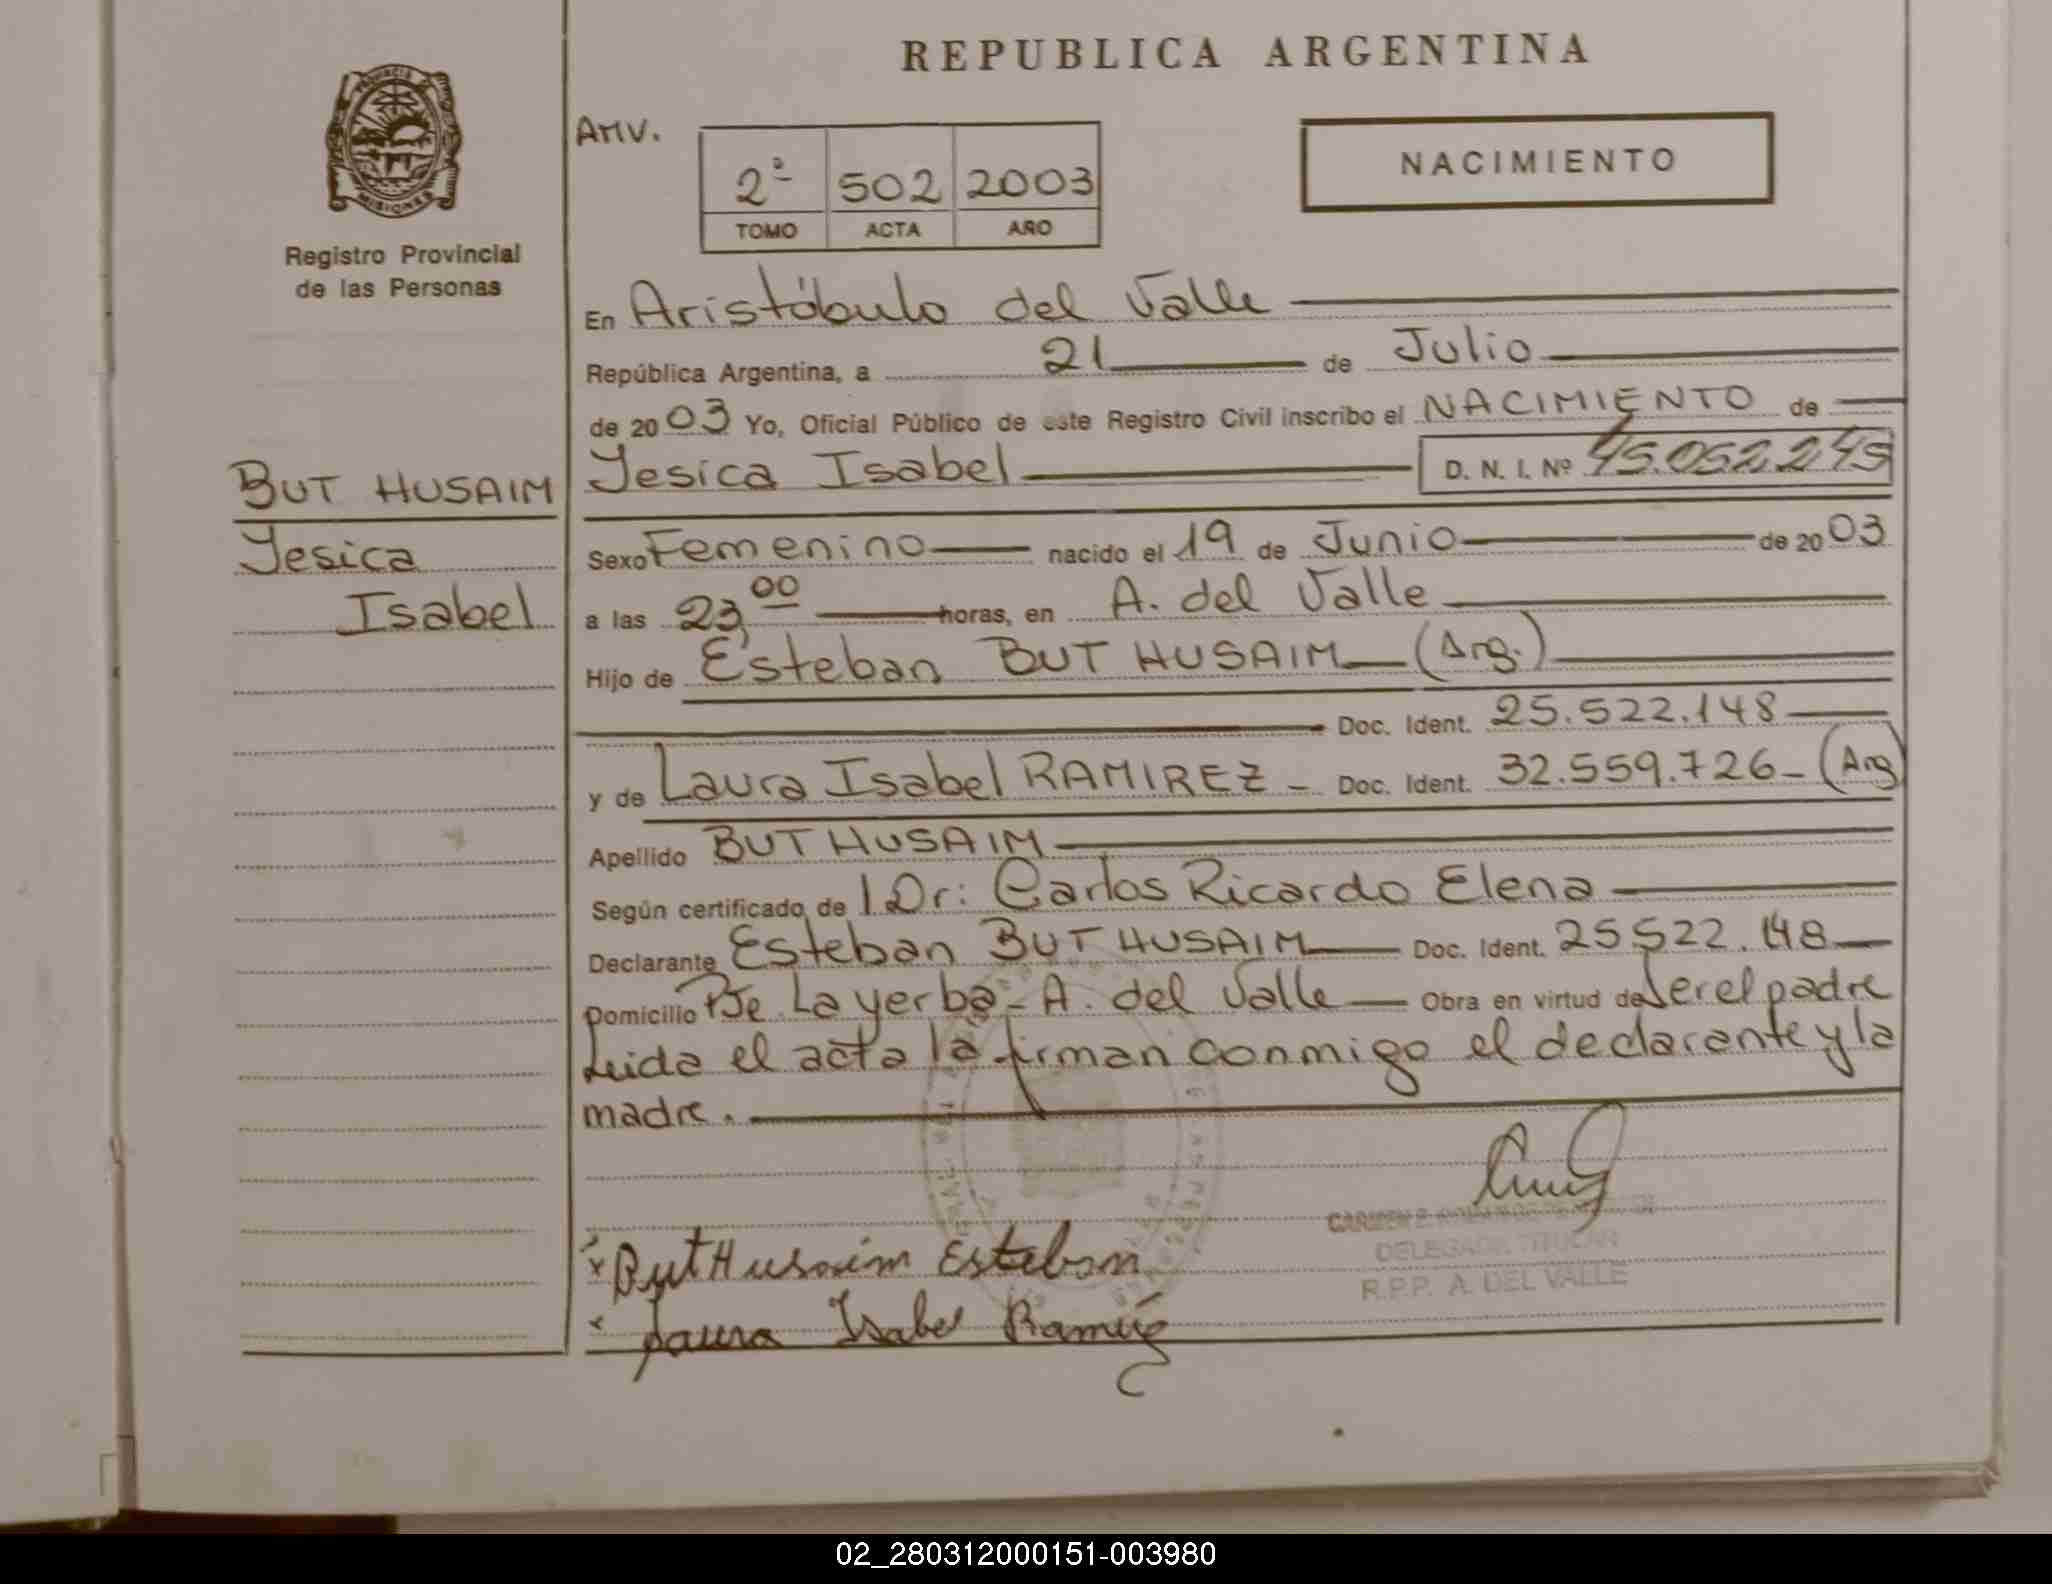 REPUBLICA ARGENTINA
PROVINCIA DE
MISIONES
Registro Provincial
de las Personas
AMV.
2º 502 2003
TOMO ACTA AÑO
NACIMIENTO
En Aristóbulo del Valle
República Argentina, a 21 de Julio
de 2003 Yo, Oficial Público de este Registro Civil inscribo el NACIMIENTO de
BUT HUSAIM
Yesica
Isabel
Yesica Isabel D. N. I. Nº 45.052.245
Sexo Femenino nacido el 19 de Junio de 2003
a las 23,00 horas, en A. del Valle
Hijo de Esteban BUT HUSAIM (Arg.)
Doc. Ident. 25.522.148
y de Laura Isabel RAMIREZ - Doc. Ident. 32.559.726 - (Arg)
Apellido BUT HUSAIM
Según certificado de l Dr: Carlos Ricardo Elena
Declarante Esteban BUT HUSAIM Doc. Ident. 25.522.148
Domicilio Pje. La yerba - A. del Valle Obra en virtud de Ser el padre
Leida el acta la firman conmigo el declarante y la
madre.
DELEGADA TITULAR
R.P.P. A. DEL VALLE
x But Husaim Esteban
x Laura Isabel Ramirez
02_280312000151-003980